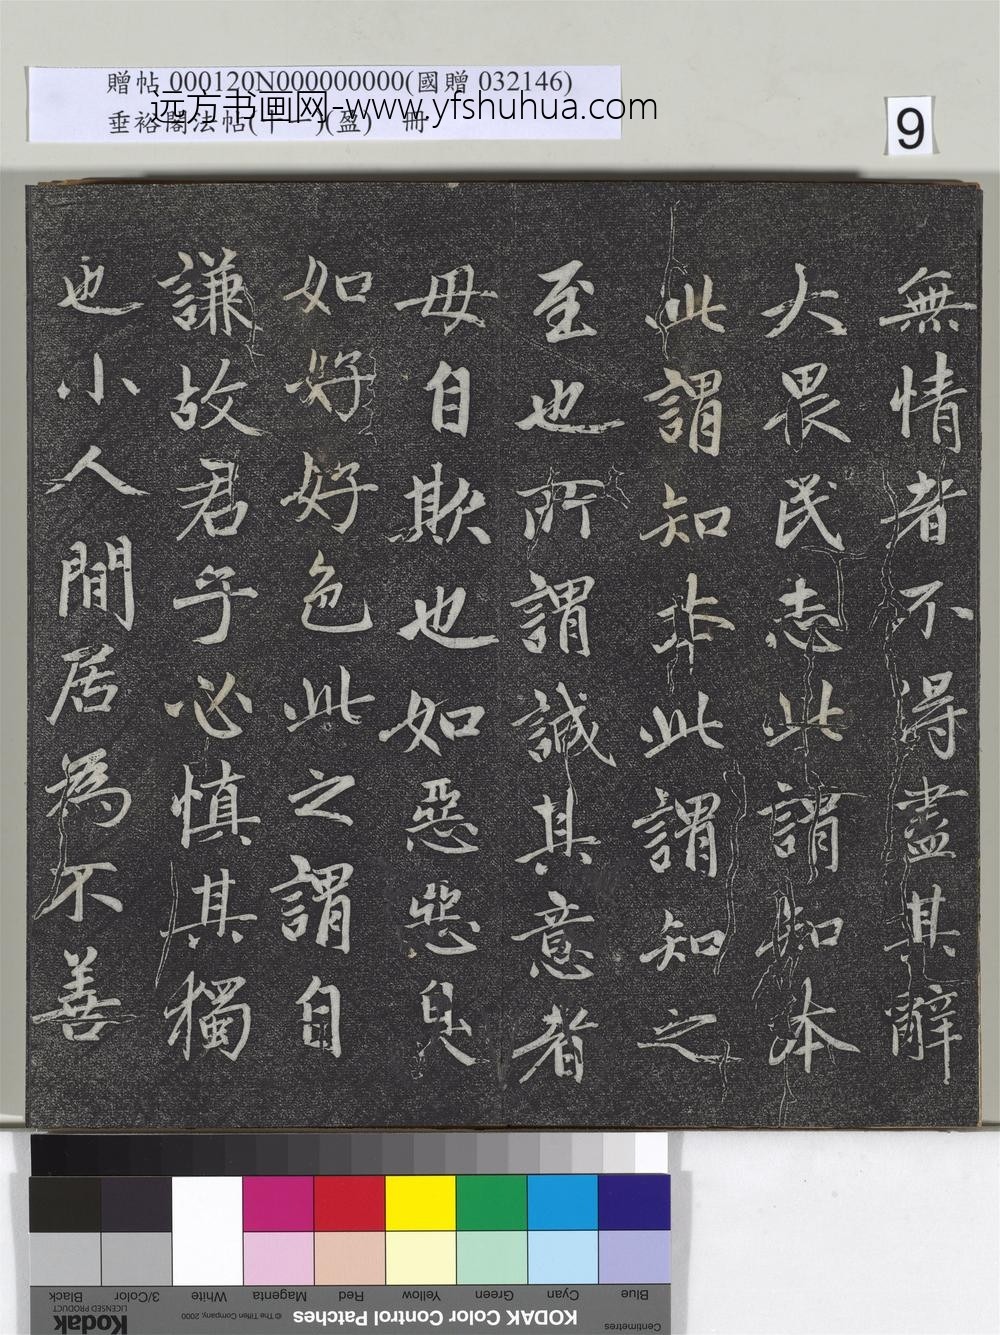 贈帖 000120N000000000(國贈 032146)
远方书画网-www.yfshuhua.com
垂裕閣法帖(十一)(盈) 冊
9
無情者不得盡其辭
大畏民志此謂知本
此謂知非此謂知之
至也所謂誠其意者
毋自欺也如惡惡臭
如好好色此之謂自
謙故君子必慎其獨
也小人閒居為不善
KODAK Color Control Patches
© The Tiffen Company, 2000
Kodak
LICENSED PRODUCT
Centimetres
Blue Cyan Green Yellow Red Magenta White 3/Color Black